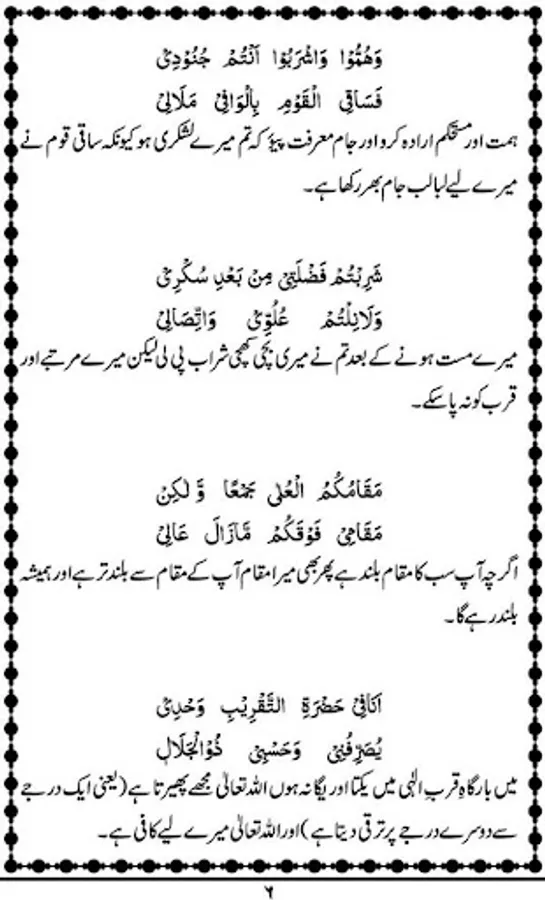 وَهُمُّوْا وَاشْرَبُوْا اَنْتُمْ جُنُوْدِیْ
فَسَاقِی الْقَوْمِ بِالْوَافِیْ مَلَالِیْ
ہمت اور مستحکم ارادہ کرو اور جام معرفت پیؤ کہ تم میرے لشکری ہو کیونکہ ساقی قوم نے
میرے لیے لبالب جام بھر رکھا ہے۔
شَرِبْتُمْ فَضْلَتِیْ مِنْ بَعْدِ سُکْرِیْ
وَلَانِلْتُمْ عُلُوِّیْ وَاتِّصَالِیْ
میرے مست ہونے کے بعد تم نے میری بچی کھچی شراب پی لی لیکن میرے مرتبے اور
قرب کو نہ پا سکے۔
مَقَامُکُمُ الْعُلٰی جَمْعًا وَّ لٰکِنْ
مَقَامِیْ فَوْقَکُمْ مَّازَالَ عَالِیْ
اگرچہ آپ سب کا مقام بلند ہے پھر بھی میرا مقام آپ کے مقام سے بلند تر ہے اور ہمیشہ
بلند رہے گا۔
اَنَافِیْ حَضْرَۃِ التَّقْرِیْبِ وَحْدِیْ
یُصَرِّفُنِیْ وَحَسْبِیْ ذُوالْجَلَالٖ
میں بارگاہِ قربِ الٰہی میں یکتا اور یگانہ ہوں اللہ تعالیٰ مجھے پھیرتا ہے (یعنی ایک درجے
سے دوسرے درجے پر ترقی دیتا ہے) اور اللہ تعالیٰ میرے لیے کافی ہے۔
۶